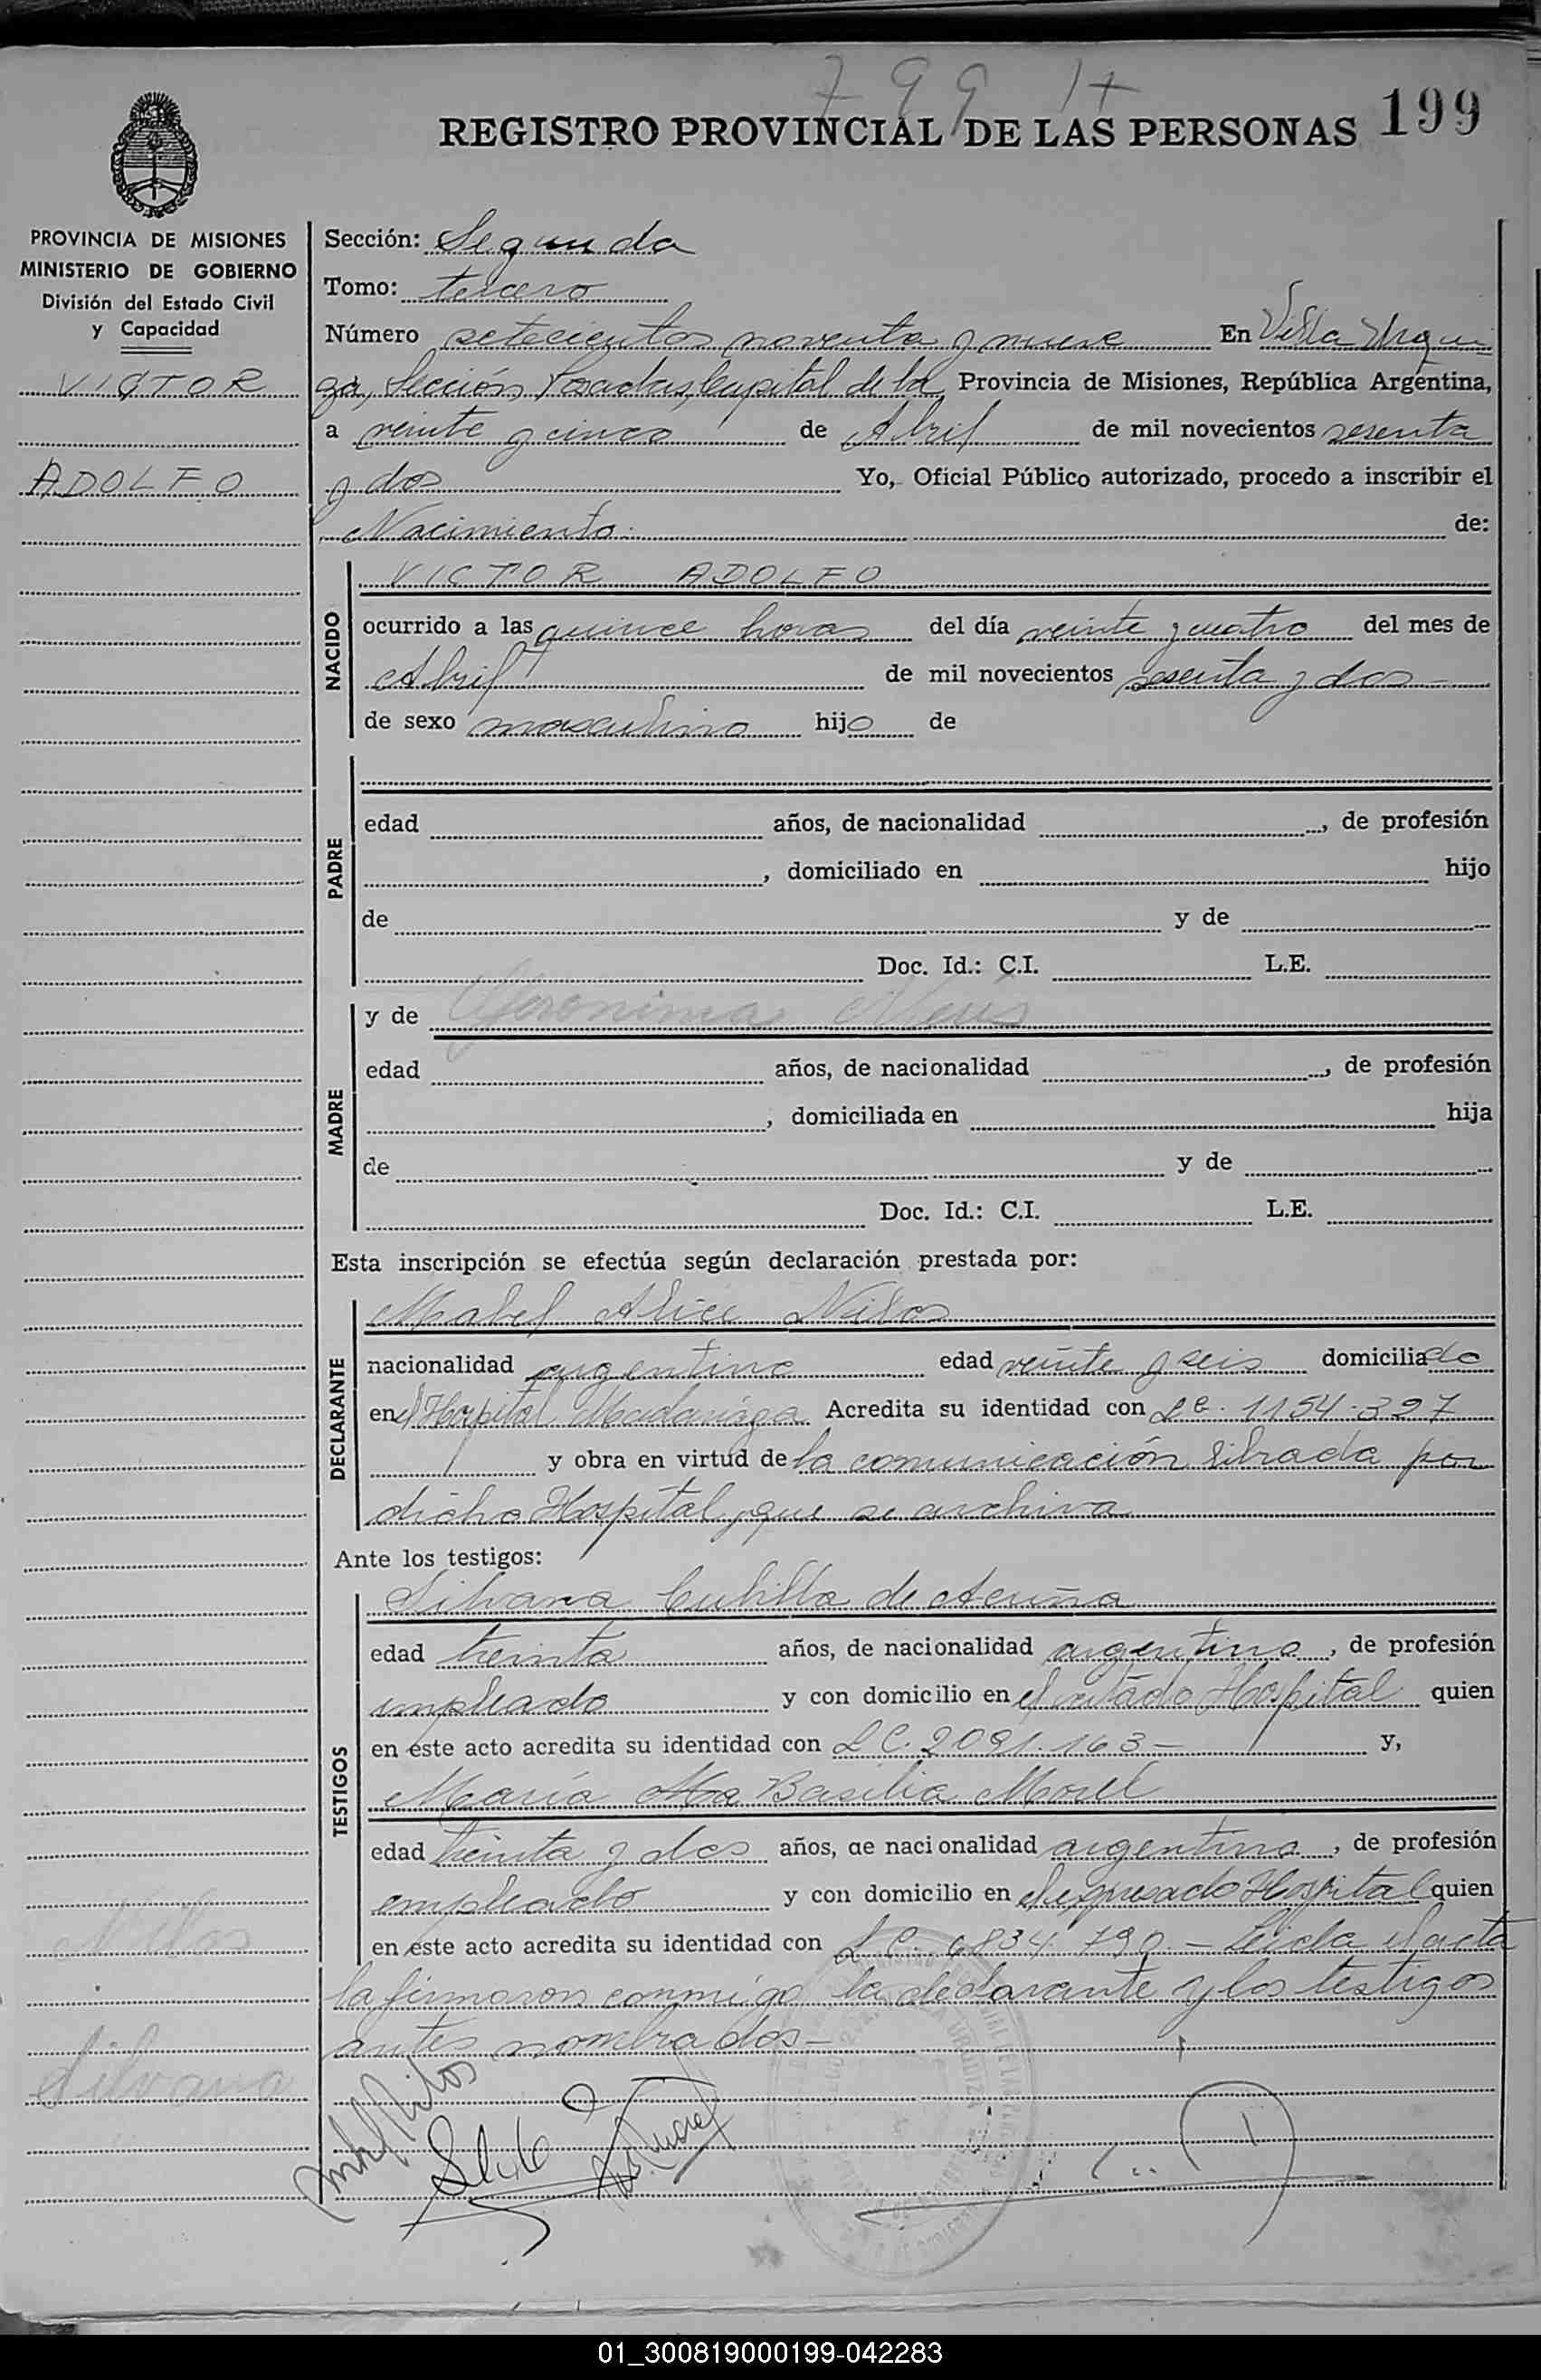 799 17
REGISTRO PROVINCIAL DE LAS PERSONAS 199
PROVINCIA DE MISIONES
MINISTERIO DE GOBIERNO
División del Estado Civil
y Capacidad
VICTOR
ADOLFO
Sección: Segunda
Tomo: tercero
Número setecientos noventa y nueve En Villa Urqui
za, Sección Posadas, Capital de la Provincia de Misiones, República Argentina,
a veinte y cinco de Abril de mil novecientos sesenta
y dos Yo, Oficial Público autorizado, procedo a inscribir el
Nacimiento de:
NACIDO
VICTOR ADOLFO
ocurrido a las quince horas del día veinte y cuatro del mes de
Abril de mil novecientos sesenta y dos
de sexo masculino hijo de
PADRE
edad años, de nacionalidad , de profesión
, domiciliado en hijo
de y de
Doc. Id.: C.I. L.E.
MADRE
y de Geronima
edad años, de nacionalidad , de profesión
, domiciliada en hija
de y de
Doc. Id.: C.I. L.E.
Esta inscripción se efectúa según declaración prestada por:
DECLARANTE
Mabel Alice Nilos
nacionalidad argentina edad veinte y seis domiciliado
en el Hospital Madariaga Acredita su identidad con LC. 1154.327
y obra en virtud de la comunicación librada por
dicho Hospital, que se archiva
Ante los testigos:
TESTIGOS
Silvana Cubilla de Acuña
edad treinta años, de nacionalidad argentina, de profesión
empleado y con domicilio en el citado Hospital quien
en este acto acredita su identidad con LC. 2091.163 - y,
María Ma Basilia Morel
edad treinta y dos años, de nacionalidad argentina, de profesión
empleado y con domicilio en el expresado Hospital quien
en este acto acredita su identidad con LC. 6834.790 - Leída el acta
la firmaron conmigo la declarante y los testigos
antes nombrados -
Silvana
01_300819000199-042283